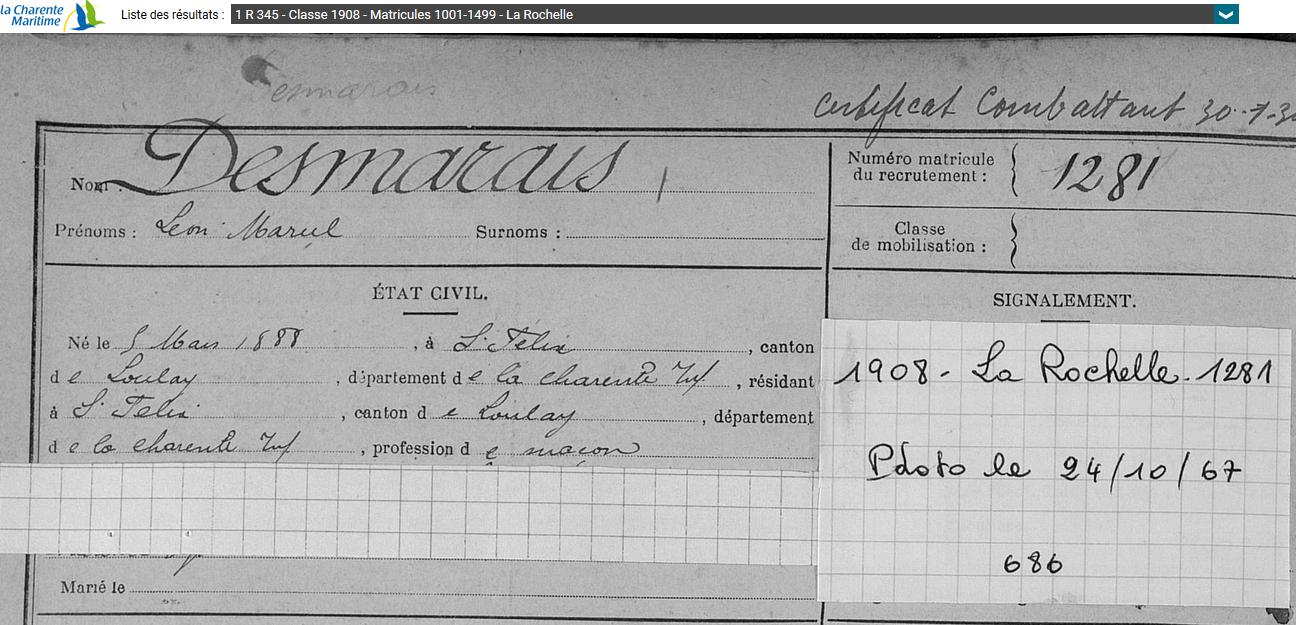 la Charente
Maritime
Liste des résultats : 1 R 345 - Classe 1908 - Matricules 1001-1499 - La Rochelle
Desmarais
Certificat Combattant 30.7.3
Nom : Desmarais
Numéro matricule
du recrutement : 1281
Prénoms : Léon Marcel Surnoms :
Classe
de mobilisation :
ÉTAT CIVIL.
SIGNALEMENT.
Né le 5 Mars 1888, à St Félix, canton
de Loulay, département de la charente Inf, résidant
à St Félix, canton de Loulay, département
de la charente Inf, profession de maçon
1908 - La Rochelle - 1281
le 24/10/67
686
Marié le